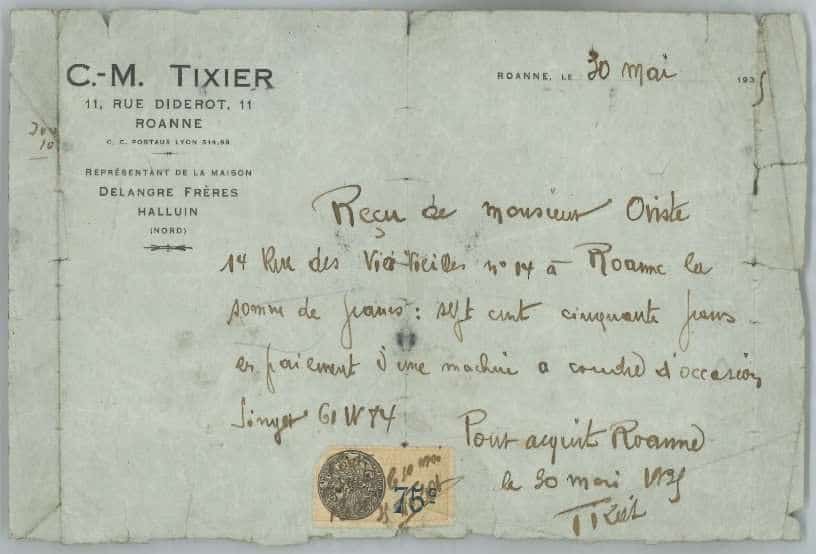 C.-M. TIXIER
11, RUE DIDEROT, 11
ROANNE
C. C. POSTAUX LYON 314.98
REPRÉSENTANT DE LA MAISON
DELANGRE FRÈRES
HALLUIN
(NORD)
ROANNE, LE 30 mai 1935
Reçu de monsieur Oriste
14 Rue des Vieilles n° 14 à Roanne la
somme de francs : sept cent cinquante francs
en paiement d'une machine a coudre d'occasion
Singer
Pour acquit Roanne
le 30 mai 1935
75c